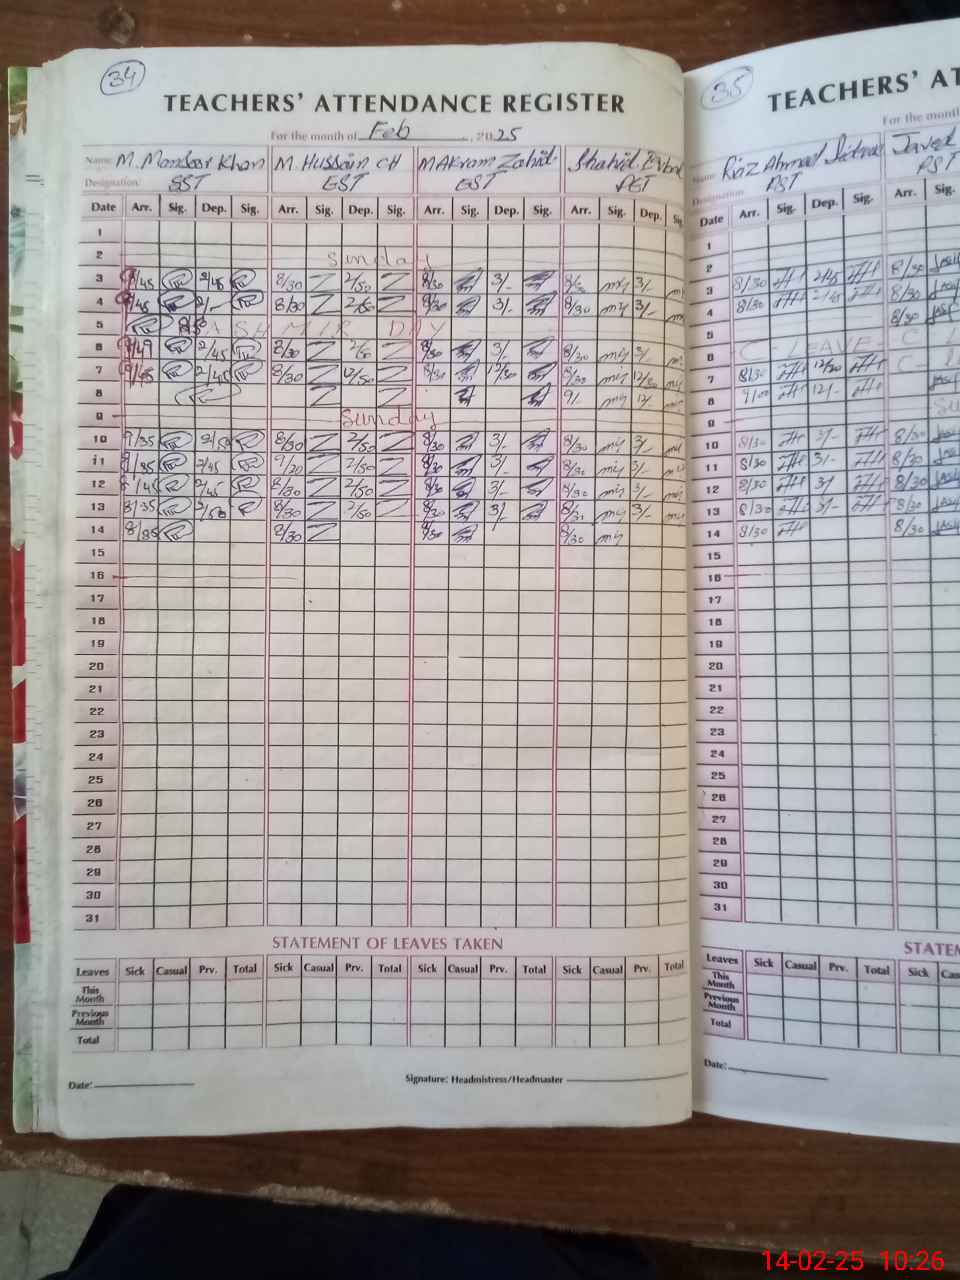 34
TEACHERS' ATTENDANCE REGISTER
For the month of Feb , 2025
Name: M. Hussain CH M Akram Zahid Shahid
Designation: SST EST EST PET
Date Arr. Sig. Dep. Sig. Arr. Sig. Dep. Sig. Arr. Sig. Dep. Sig. Arr. Sig. Dep. Sig
1
2 Sunday
3 8/45 2/45 8/30 2/50 8/30 3/- 8/30 3/-
4 8/45 2/- 8/30 2/50 8/30 3/- 8/30 3/-
5 KASHMIR DAY
6 2/45 8/30 8/30 3/- 8/30 3/-
7 2/45 8/30 12/50 8/30 12/30 8/30
8 9/- 12/-
9 Sunday
10 8/30 2/50 8/30 3/- 8/30 3/-
11 2/45 2/50 8/30 3/- 8/30 3/-
12 2/45 8/30 2/50 8/30 3/- 8/30 3/-
13 8/35 8/30 2/50 8/30 3/- 3/-
14 8/30 8/30 8/30
15
16
17
18
19
20
21
22
23
24
25
26
27
28
29
30
31
STATEMENT OF LEAVES TAKEN
Leaves Sick Casual Prv. Total Sick Casual Prv. Total Sick Casual Prv. Total Sick Casual Prv. Total
This Month
Previous Month
Total
Date: Signature: Headmistress/Headmaster
35
TEACHERS' AT
For the month
Name: Riaz Ahmad Javed
Designation: PST PST
Date Arr. Sig. Dep. Sig. Arr. Sig.
1
2
3 8/30 2/45 8/30
4 8/30 2/45 8/30
5 8/30
6 C-LEAVE- C
7 8/30 12/30
8 9/00 12/-
9
10 8/30 3/- 8/30
11 8/30 3/- 8/30
12 8/30 3/ 8/30
13 8/30 3/- 8/30
14 8/30 8/30
15
16
17
18
19
20
21
22
23
24
25
26
27
28
29
30
31
STATEM
Leaves Sick Casual Prv. Total Sick Cas
This Month
Previous Month
Total
Date:
14-02-25 10:26